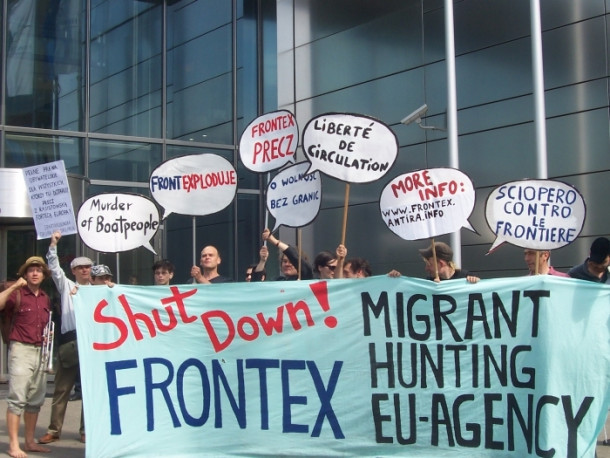 PEŁNE PRAWA
DLA WSZYSTKICH
KTÓRZY TU
PRECZ
Murder
of Bootpeople
FRONTEXPLODUJE
FRONTEX
PRECZ
O WOLNOŚĆ
BEZ GRANIC
LIBERTÉ
DE
CIRCULATION
MORE INFO:
WWW.FRONTEX.
ANTIRA.INFO
SCIOPERO
CONTRO
LE
FRONTIERE
Shut Down!
FRONTEX
MIGRANT
HUNTING
EU-AGENCY